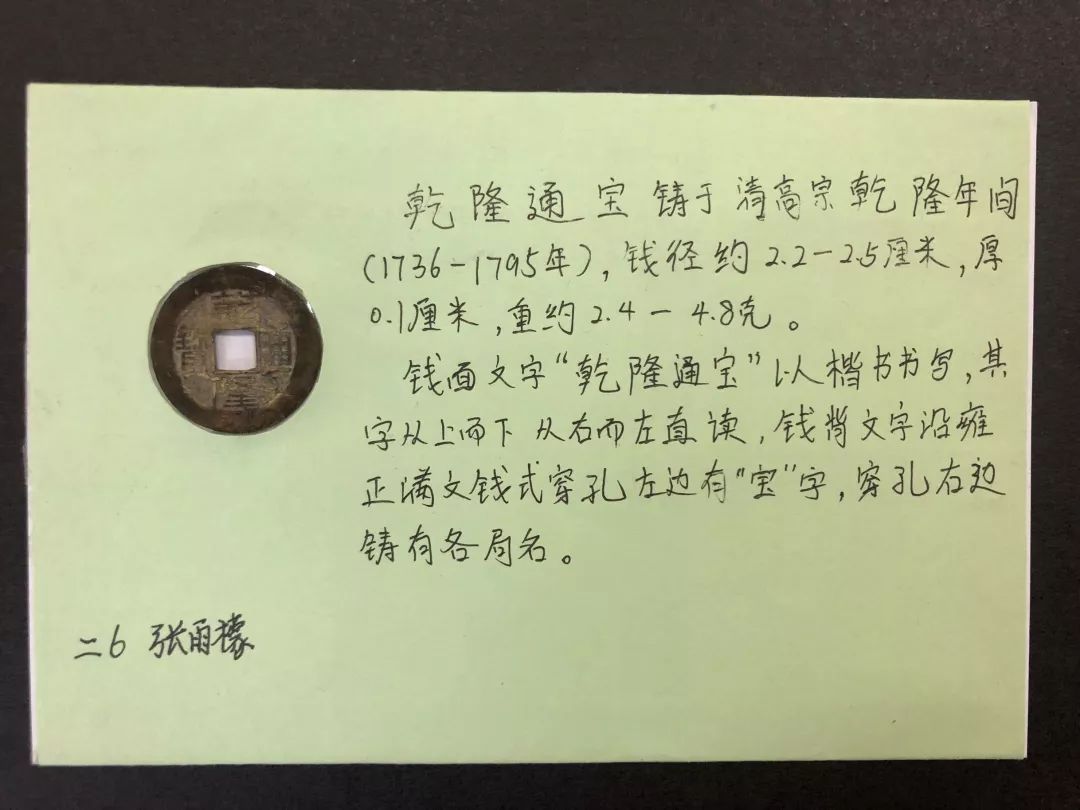 乾隆通宝铸于清高宗乾隆年间
(1736-1795年),钱径约2.2-2.5厘米,厚
0.1厘米,重约2.4-4.8克。
钱面文字“乾隆通宝”以楷书书写,其
字从上而下从右而左直读,钱背文字沿雍
正满文钱式穿孔左边有“宝”字,穿孔右边
铸有各局名。
二6 张雨檬
乾隆通寶